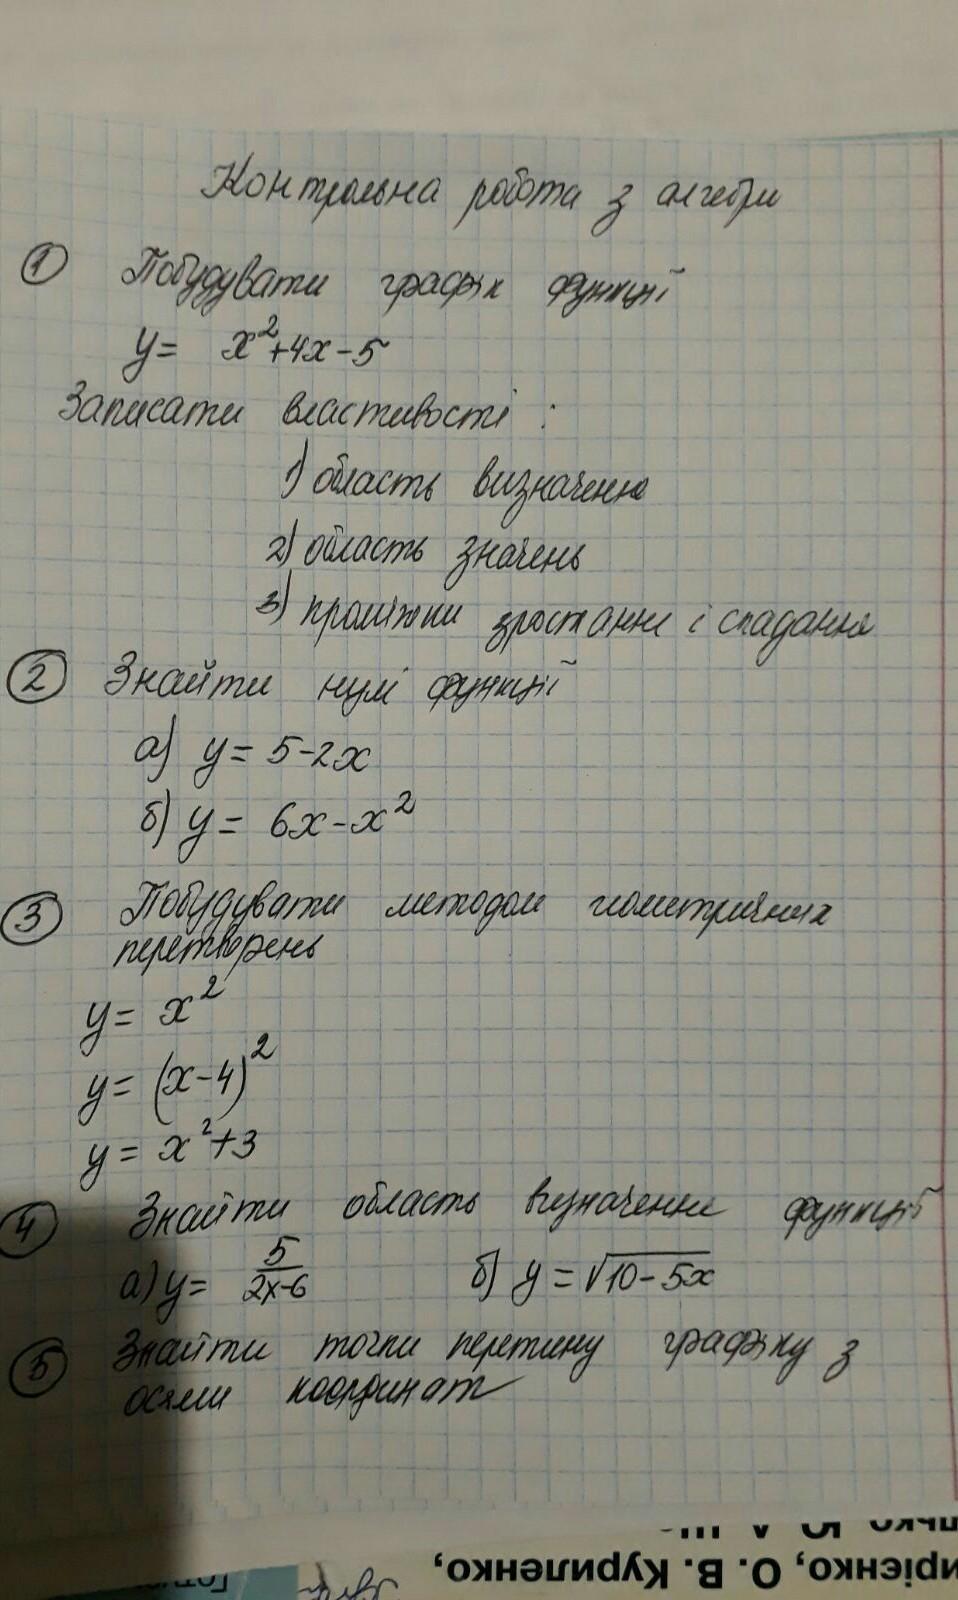 Контрольна робота з алгебри
1 Побудувати графік функції
y = x²+4x-5
Записати властивості :
1) область визначення
2) область значень
3) проміжки зростання і спадання
2 Знайти нулі функції
а) y = 5-2x
б) y = 6x-x²
3 Побудувати методом геометричних
перетворень
y = x²
y = (x-4)²
y = x²+3
4 Знайти область визначення функції
а) y = 5/(2x-6) б) y = √10-5x
5 Знайти точки перетину графіку з
осями координат
ирієнко, О. В. Куриленко,